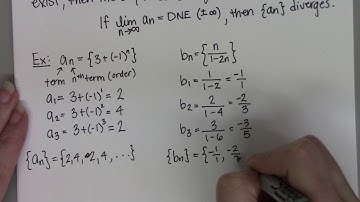 exist, then
If lim an = DNE (±∞), then {an} diverges.
n→∞
Ex: an = {3+(-1)^n}
term nth term (order)
a1 = 3+(-1)^1 = 2
a2 = 3+(-1)^2 = 4
a3 = 3+(-1)^3 = 2
{an} = {2, 4, 2, 4, ...}
bn = {n/(1-2n)}
b1 = 1/(1-2) = -1/1
b2 = 2/(1-4) = -2/3
b3 = 3/(1-6) = -3/5
{bn} = {-1/1, -2/